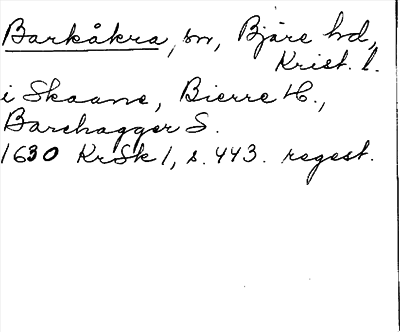 Barkåkra, sn, Bjäre hd,
Krist. l.
i Skaane, Bierre H.,
Barehagger S.
1630 KrSk 1, s. 443. regest.